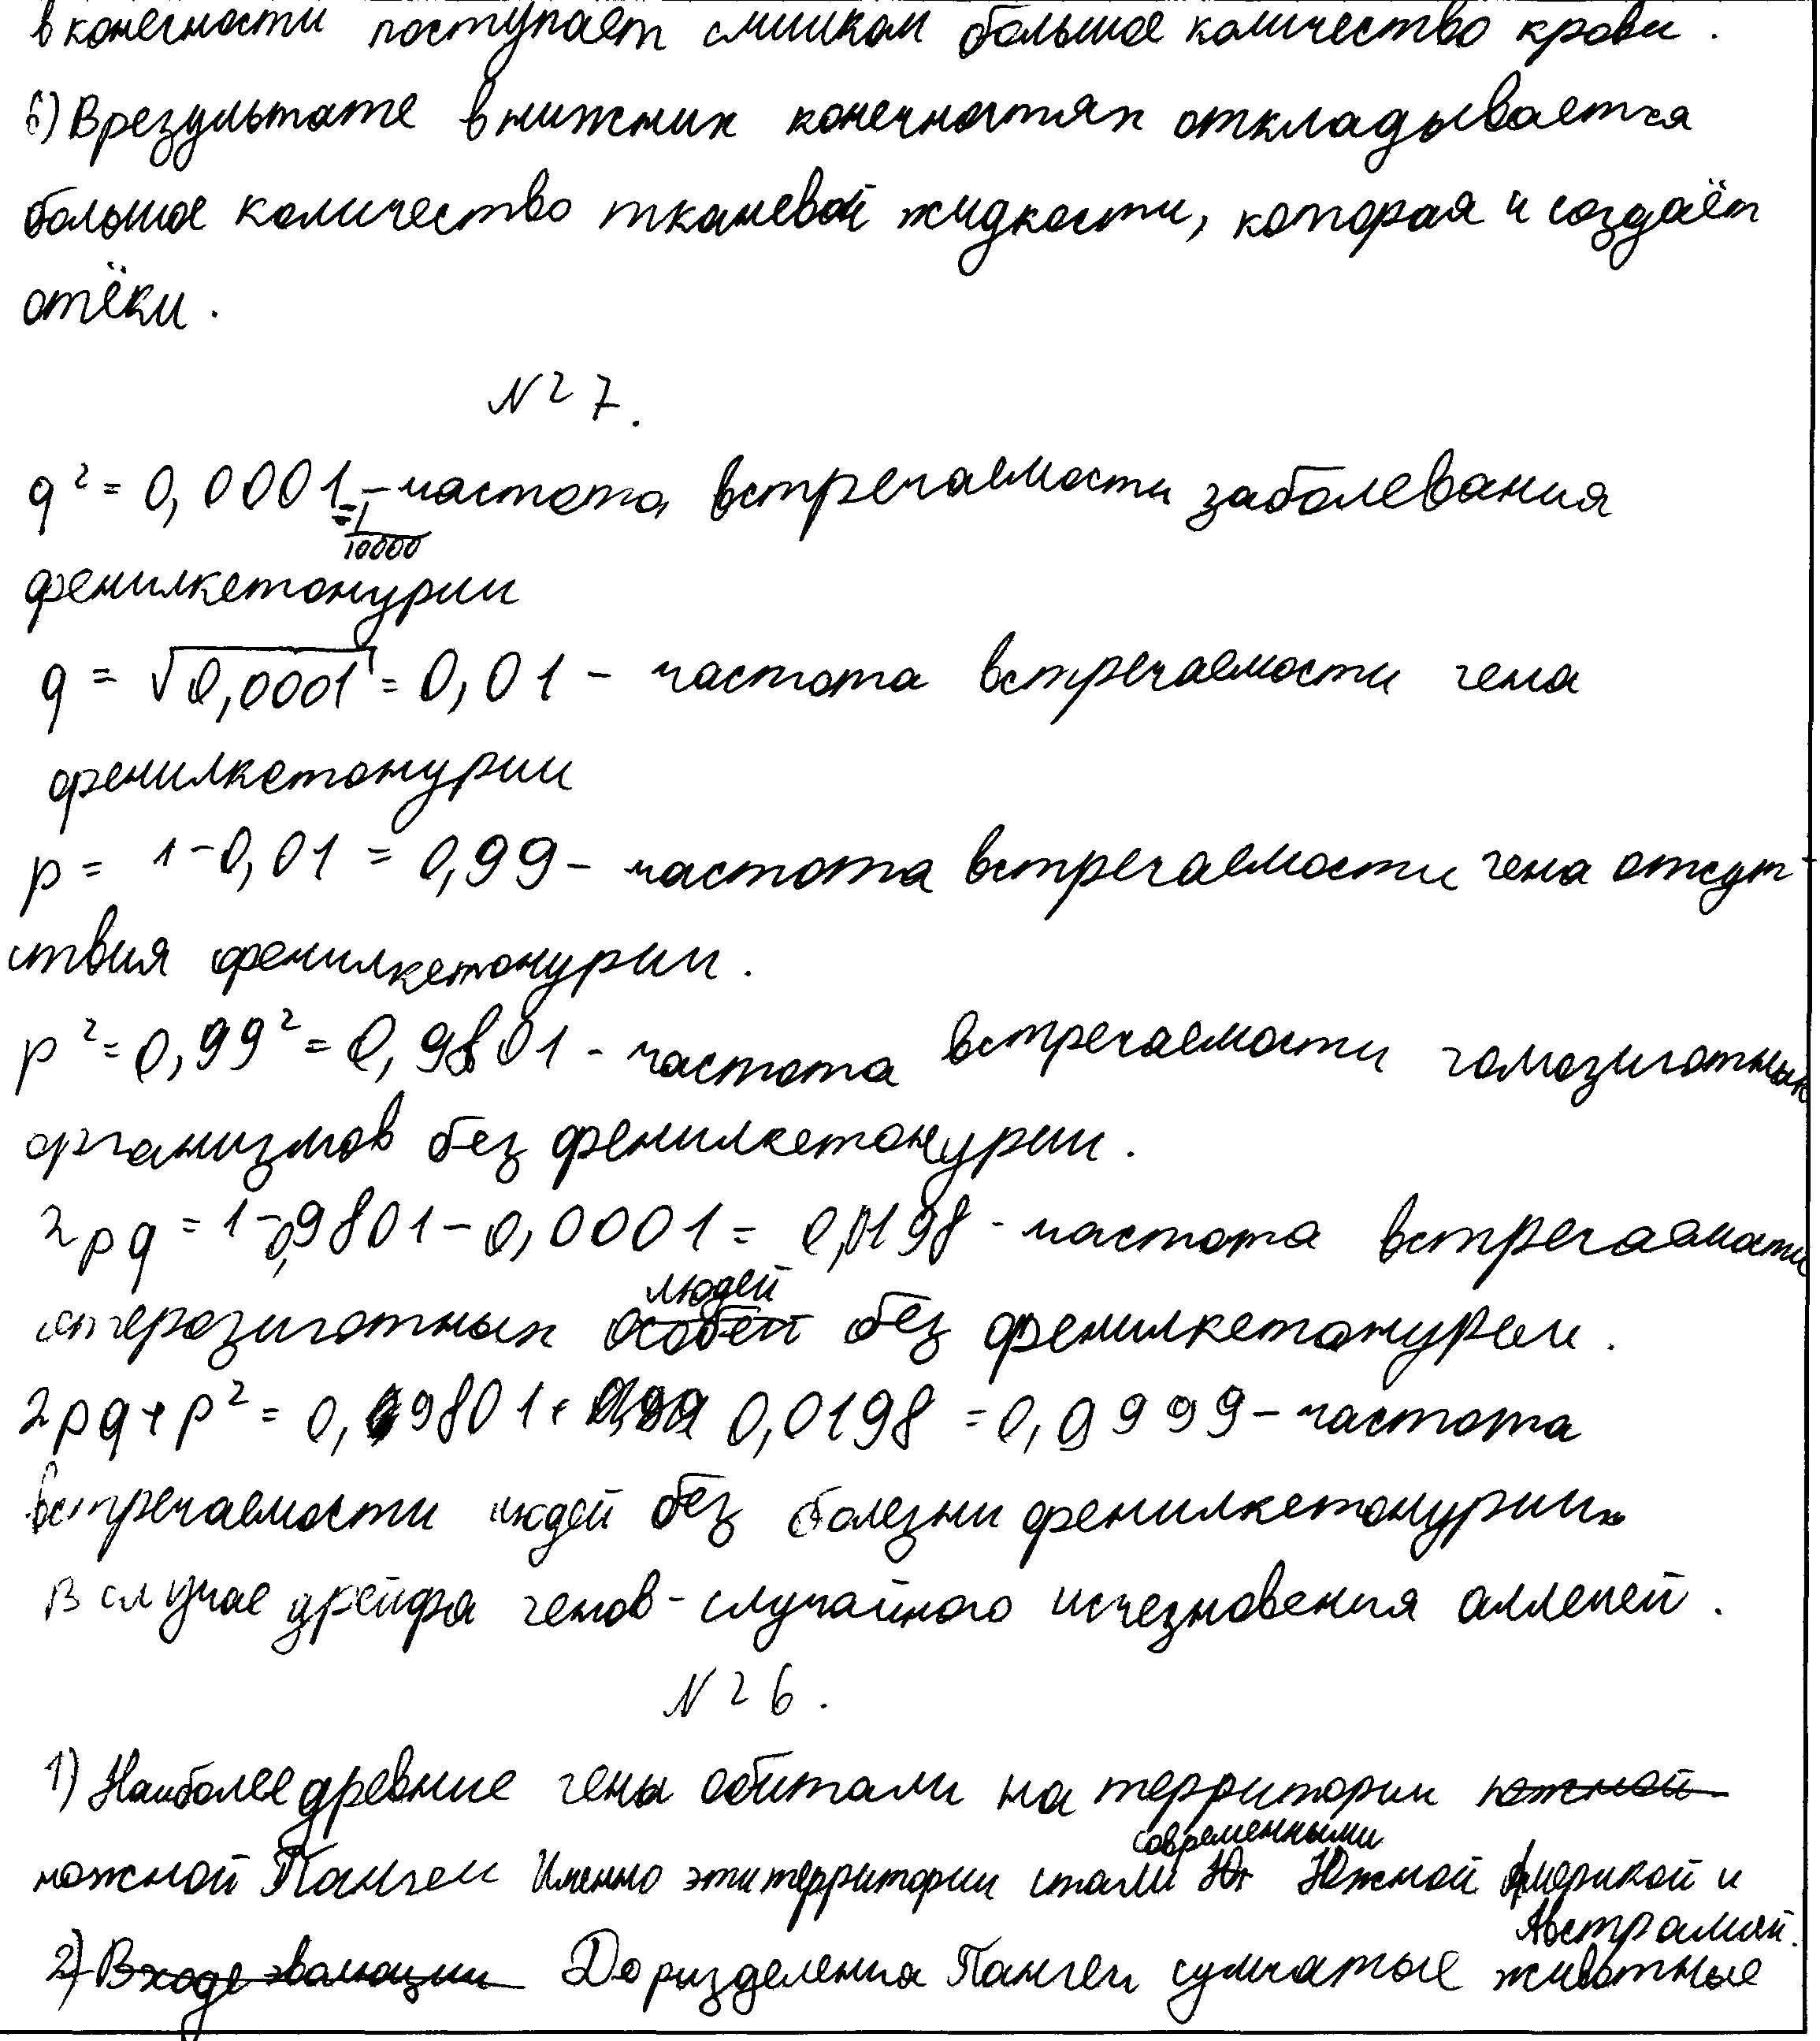 в конечности поступает слишком большое количество крови.
6) В результате в нижних конечностях откладывается
большое количество тканевой жидкости, которая и создаёт
отёки.
№ 7.
q² = 0,0001 = 1/10000 – частота встречаемости заболевания
фенилкетонурии
q = √0,0001 = 0,01 – частота встречаемости гена
фенилкетонурии
p = 1 – 0,01 = 0,99 – частота встречаемости гена отсут-
ствия фенилкетонурии.
p² = 0,99² = 0,9801 – частота встречаемости гомозиготных
организмов без фенилкетонурии.
2pq = 1 – 0,9801 – 0,0001 = 0,0198 – частота встречаемости
людей
гетерозиготных особей без фенилкетонурии.
2pq + p² = 0,9801 + 0,0198 = 0,9999 – частота
встречаемости людей без болезни фенилкетонурии.
В случае дрейфа генов – случайного исчезновения аллелей.
№ 6.
1) Наиболее древние гены обитали на территории южной
южной Пангеи Именно эти территории стали современными Юж Южной Америкой и
Австралией.
2) В ходе эволюции До разделения Пангеи сумчатые животные